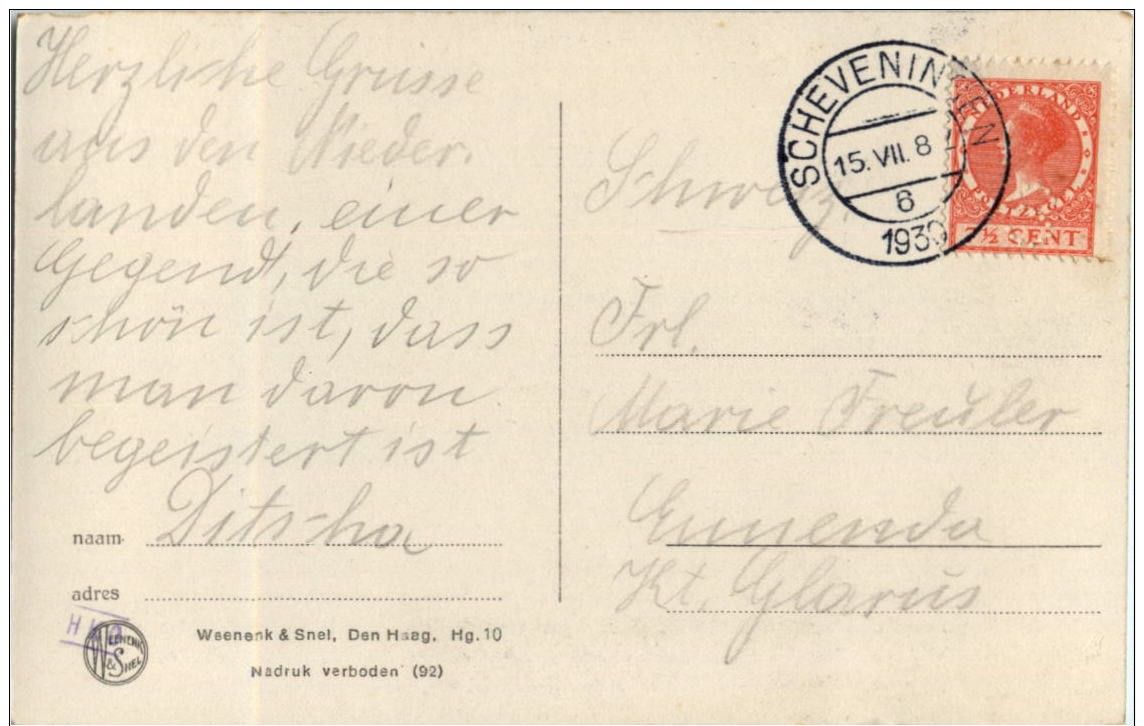 Herzliche Grusse
aus den Nieder-
landen, einer
Gegend, die so
schön ist, dass
man davon
begeistert ist
Ditscha
naam
adres
WEENENK
& SNEL
Weenenk & Snel, Den Haag. Hg. 10
Nadruk verboden (92)
SCHEVENINGEN
15. VII. 8
6
1930
NEDERLAND
7½ CENT
Schweiz.
Frl.
Marie Freuler
Ennenda
Kt. Glarus